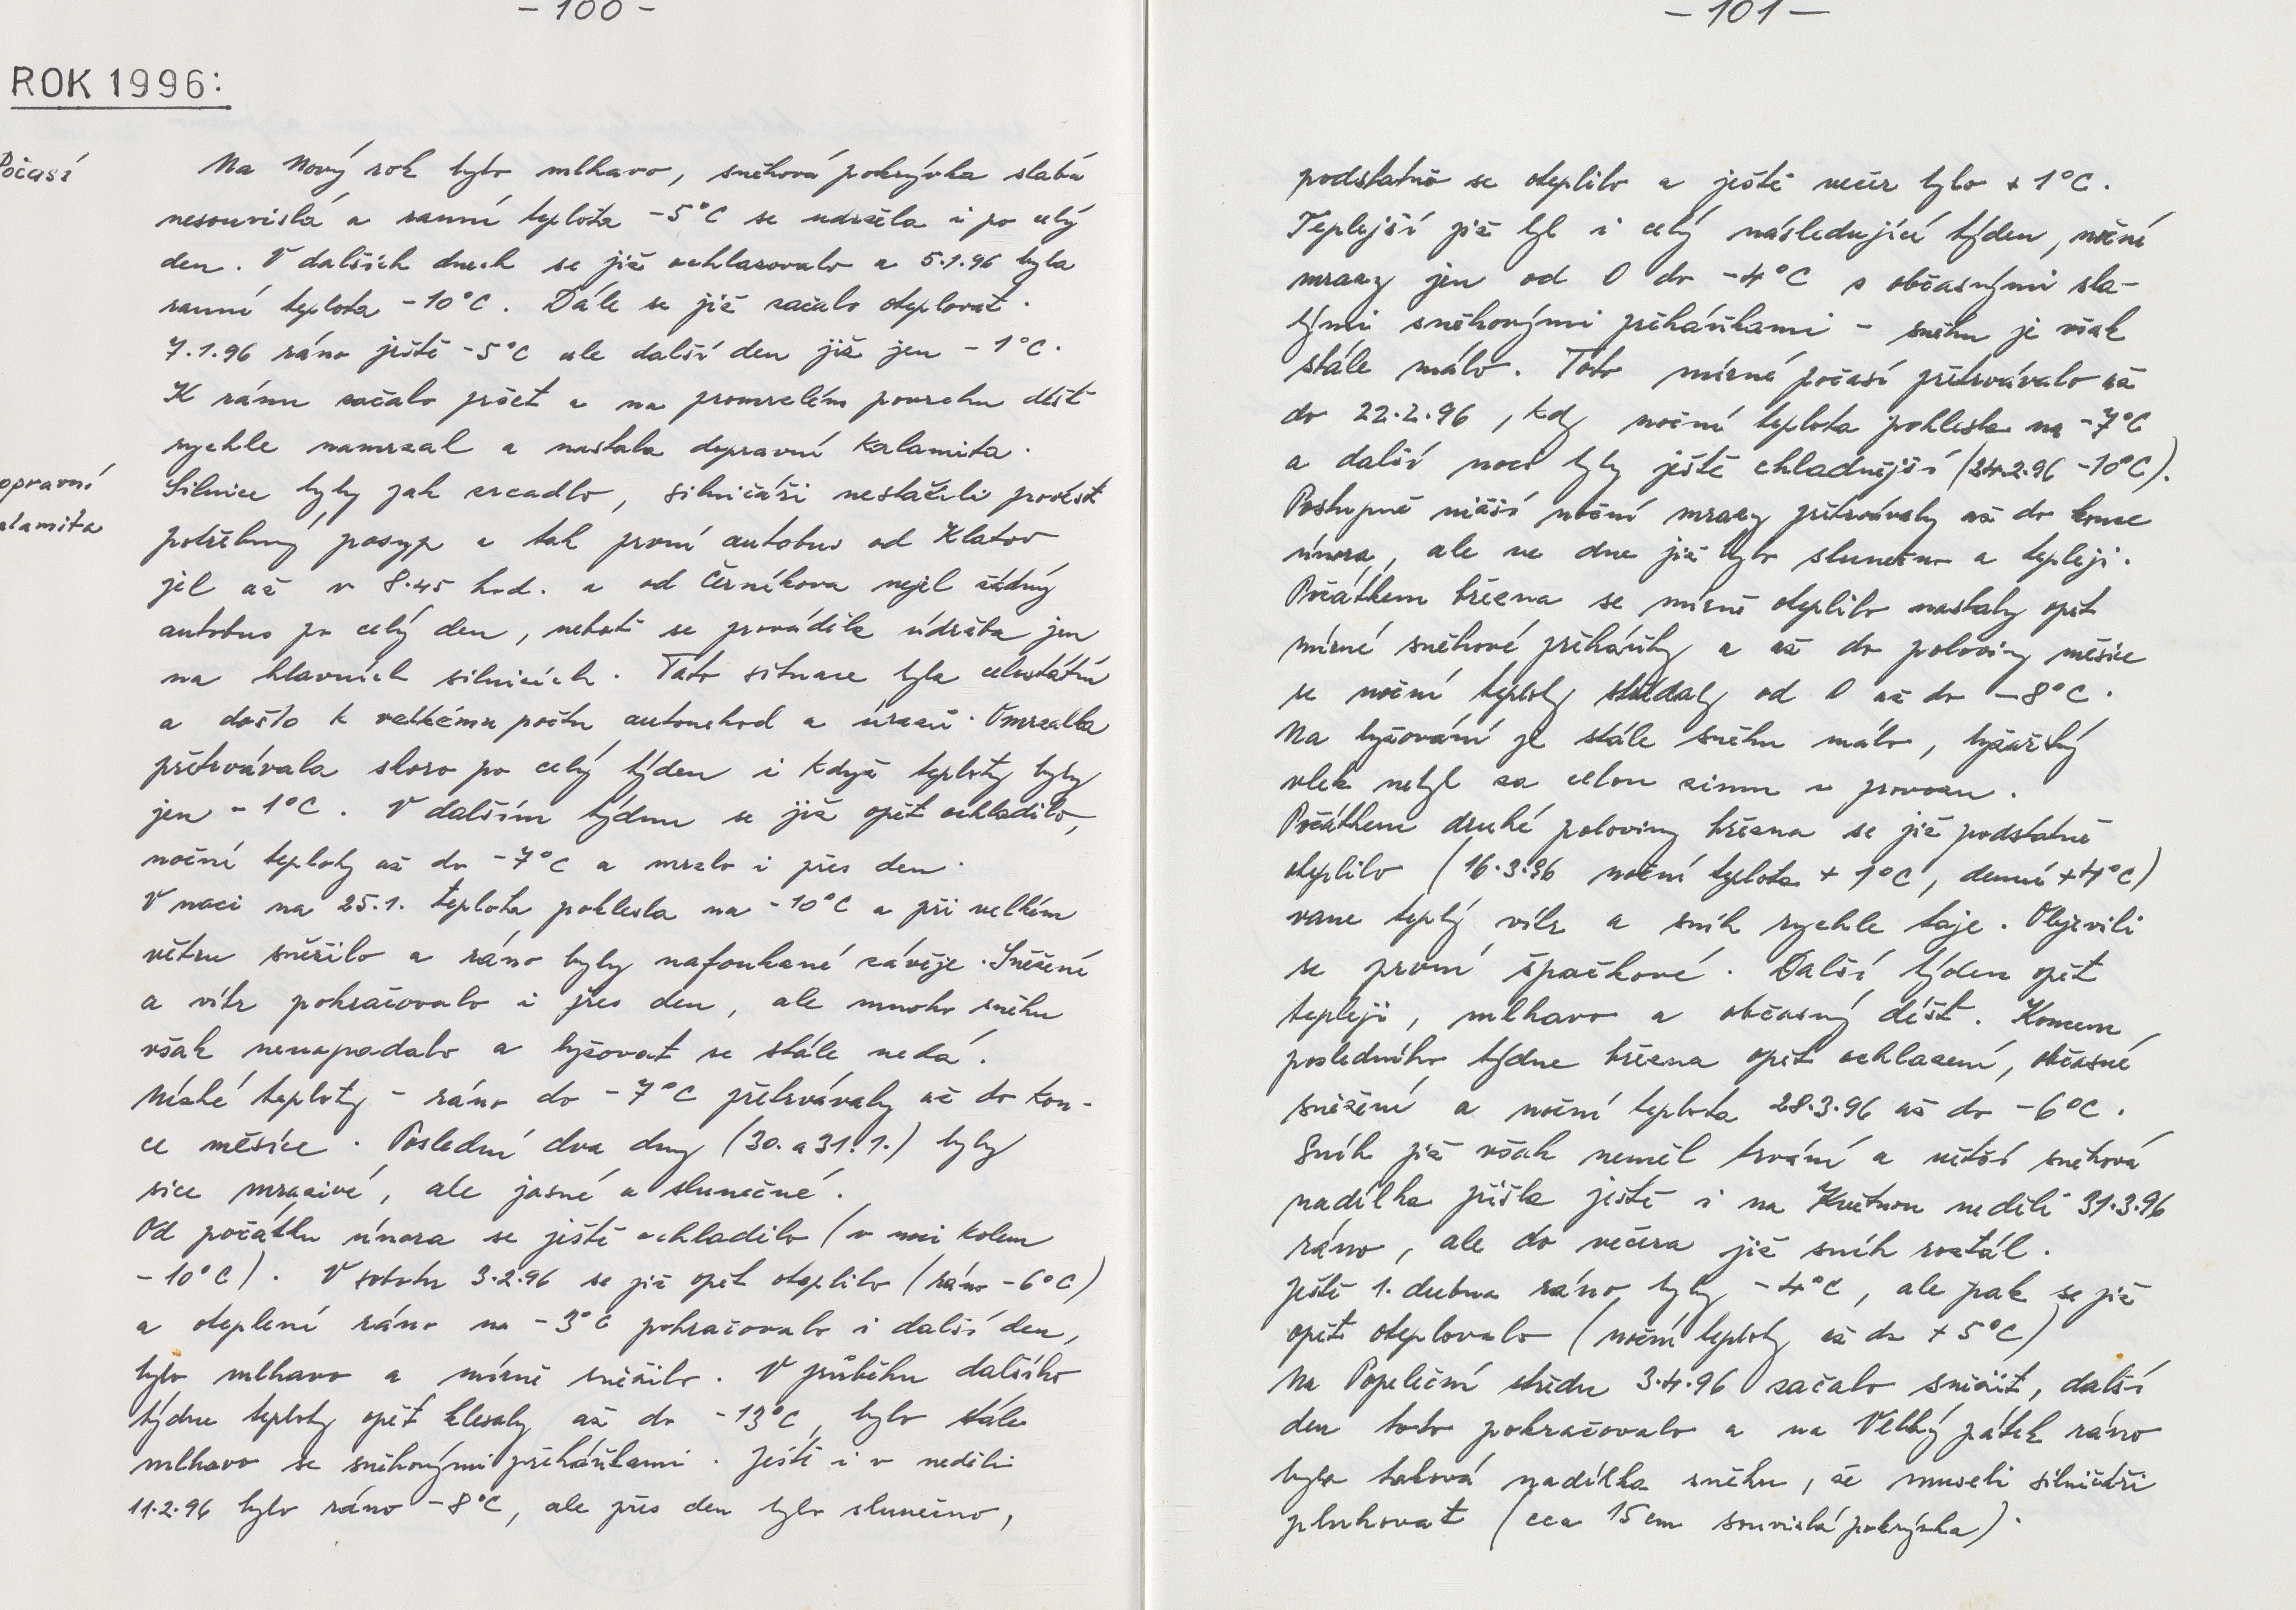 - 100 -
ROK 1996:
Počasí
Na Nový rok bylo mlhavo, sněhová pokrývka slabá
nesouvislá a ranní teplota -5°C se udržela i po celý
den. V dalších dnech se již ochlazovalo a 5.1.96 byla
ranní teplota -10°C. Dále se již začalo oteplovat.
7.1.96 ráno ještě -5°C ale další den již jen -1°C.
K ránu začalo pršet a na promrzlém povrchu déšť
rychle namrzal a nastala dopravní kalamita.
opravní
alamita
Silnice byly jak zrcadlo, silničáři nestačili provést
potřebný posyp a tak první autobus od Klatov
jel až v 8.45 hod. a od Černíkova nejel žádný
autobus po celý den, neboť se prováděla údržba jen
na hlavních silnicích. Tato situace byla celostátní
a došlo k velkému počtu autonehod a úrazů. Omrzalka
přetrvávala skoro po celý týden i když teploty byly
jen -1°C. V dalším týdnu se již opět ochladilo,
noční teploty až do -7°C a mrzlo i přes den.
V noci na 25.1. teplota poklesla na -10°C a při velkém
větru sněžilo a ráno byly nafoukané závěje. Sněžení
a vítr pokračovalo i přes den, ale mnoho sněhu
však nenapadalo a lyžovat se stále nedá.
Nízké teploty - ráno do -7°C přetrvávaly až do kon-
ce měsíce. Poslední dva dny (30. a 31.1.) byly
sice mrazivé, ale jasné a slunečné.
Od počátku února se ještě ochladilo (v noci kolem
-10°C). V sobotu 3.2.96 se již opět oteplilo (ráno -6°C)
a oteplení ráno na -3°C pokračovalo i další den,
bylo mlhavo a mírně sněžilo. V průběhu dalšího
týdne teploty opět klesaly až do -13°C, bylo stále
mlhavo se sněhovými přeháňkami. Ještě i v neděli
11.2.96 bylo ráno -8°C, ale přes den bylo slunečno,
- 101 -
podstatně se oteplilo a ještě večer bylo +1°C.
Teplejší již byl i celý následující týden, noční
mrazy jen od 0 do -4°C s občasnými sla-
bými sněhovými přeháňkami - sněhu je však
stále málo. Toto mírné počasí přetrvávalo až
do 22.2.96, kdy noční teplota poklesla na -7°C
a další noci byly ještě chladnější (24.2.96 -10°C).
Postupně nižší noční mrazy přetrvávaly až do konce
února, ale ve dne již bylo slunečno a tepleji.
Počátkem března se mírně oteplilo nastaly opět
mírné sněhové přeháňky a až do poloviny měsíce
se noční teploty střídaly od 0 až do -8°C.
Na lyžování je stále sněhu málo, lyžařský
vlek nebyl za celou zimu v provozu.
Počátkem druhé poloviny března se již podstatně
oteplilo (16.3.96 noční teplota +1°C, denní +4°C)
vane teplý vítr a sníh rychle taje. Objevili
se první špačkové. Další týden opět
tepleji, mlhavo a občasný déšť. Koncem
posledního týdne března opět ochlazení, občasné
sněžení a noční teplota 28.3.96 až do -6°C.
Sníh již však neměl trvání a větší sněhová
nadílka přišla ještě i na Květnou neděli 31.3.96
ráno, ale do večera již sníh roztál.
Ještě 1. dubna ráno byly -4°C, ale pak se již
opět oteplovalo (noční teploty až do +5°C)
Na Popeleční středu 3.4.96 začalo sněžit, další
den toto pokračovalo a na Velký pátek ráno
byla taková nadílka sněhu, že museli silničáři
pluhovat (cca 15 cm souvislá pokrývka).